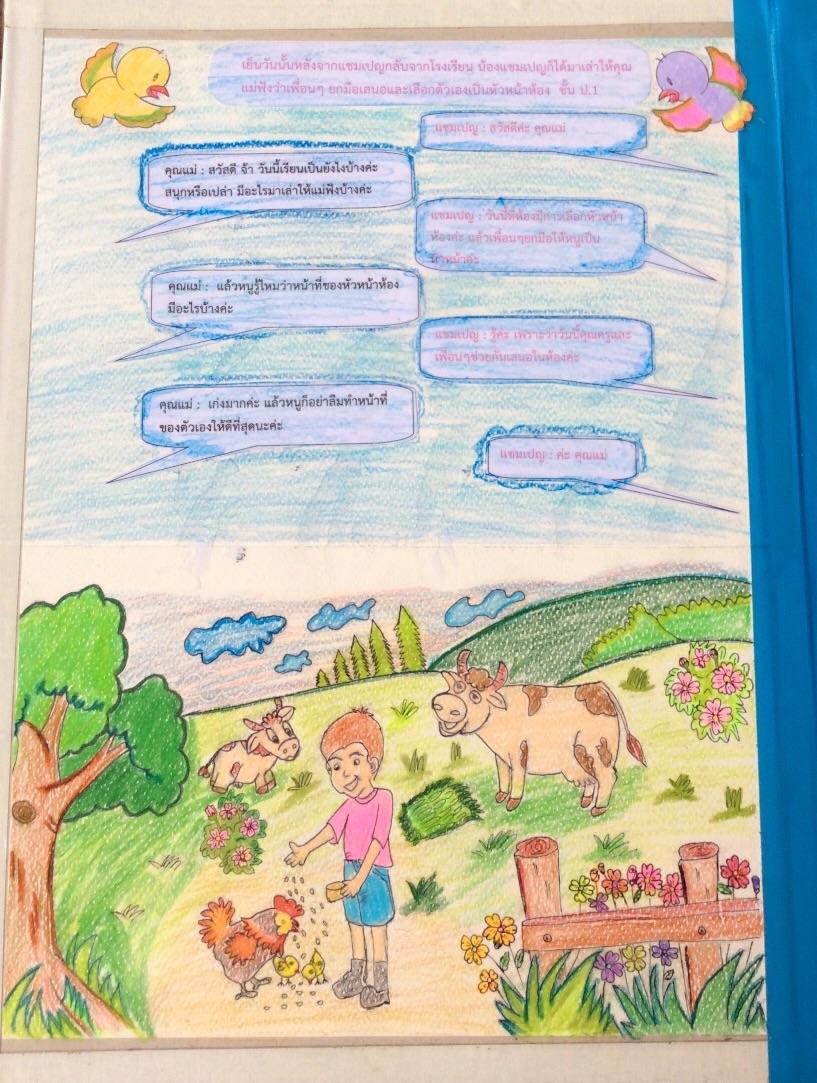 เย็นวันนั้นหลังจากแชมเปญกลับจากโรงเรียน น้องแชมเปญก็ได้มาเล่าให้คุณ
แม่ฟังว่าเพื่อนๆ ยกมือเสนอและเลือกตัวเองเป็นหัวหน้าห้อง ชั้น ป.1
แชมเปญ : สวัสดีค่ะ คุณแม่
คุณแม่ : สวัสดี จ้า วันนี้เรียนเป็นยังไงบ้างค่ะ
สนุกหรือเปล่า มีอะไรมาเล่าให้แม่ฟังบ้างค่ะ
แชมเปญ : วันนี้ที่ห้องมีการเลือกหัวหน้า
ห้องค่ะ แล้วเพื่อนๆยกมือให้หนูเป็น
หัวหน้าค่ะ
คุณแม่ : แล้วหนูรู้ไหมว่าหน้าที่ของหัวหน้าห้อง
มีอะไรบ้างค่ะ
แชมเปญ : รู้ค่ะ เพราะว่าวันนี้คุณครูและ
เพื่อนๆช่วยกันเสนอในห้องค่ะ
คุณแม่ : เก่งมากค่ะ แล้วหนูก็อย่าลืมทำหน้าที่
ของตัวเองให้ดีที่สุดนะค่ะ
แชมเปญ : ค่ะ คุณแม่